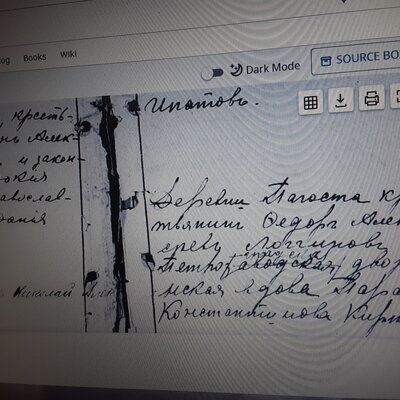 og Books Wiki
Dark Mode
SOURCE BO
Ипатовъ.
, кресть-
нъ Алек-
, и закон-
равослав-
данія
Николай
Деревни Погоста кр
тьянинъ Ѳедоръ Алек
сѣевъ Логгиновъ
Петрозаводская двор
нская вдова Пара
Константинова Кири